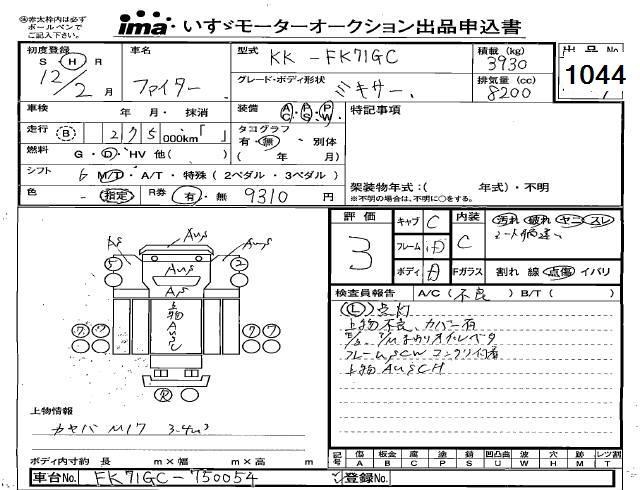 ㊟赤太枠内は必ず
ボールペンで
ご記入下さい。
ima いすゞモーターオークション出品申込書
初度登録 車名 型式 KK-FK71GC 積載(kg) 3930 出品No. 1044
S・H・R 12/2月 ファイター グレード・ボディ形状 ミキサー. 排気量(cc) 8200
車検 年 月・抹消 装備 AC・PS・PW 特記事項
走行 B 275 000km「 」 タコグラフ
有・無 別体
燃料 G・D・HV 他( ) ( 年 月)
シフト 6 MT・A/T・特殊(2ペダル・3ペダル) 架装物年式:( 年式)・不明
※不明の場合は、不明に○をする。
色 - 指定 R券 有・無 9310 円
評価 3 キャブ C 内装 C 汚れ・破れ・ヤニ・スレ
シート
フレーム
ボディ Fガラス 割れ 線 点傷 イバリ
検査員報告 A/C(不良)B/T( )
(L)点灯
上物不良、カバー有
フレームUSCW コンクリ付着
上物 AUSCH
AS AUS AUS
AUS
A/S
5 2
上物AUSC
ワ ワ ワ ワ
R
上物情報
カヤバ M17 3.4m³
ボディ内寸約 長 m×幅 m×高 m
記号 傷 A 板金 B 腐 C 塗 P 錆 S 凹凸曲 U 波 W 穴 H 跡 M レツ割 T
車台No. FK71GC-750054 登録No.